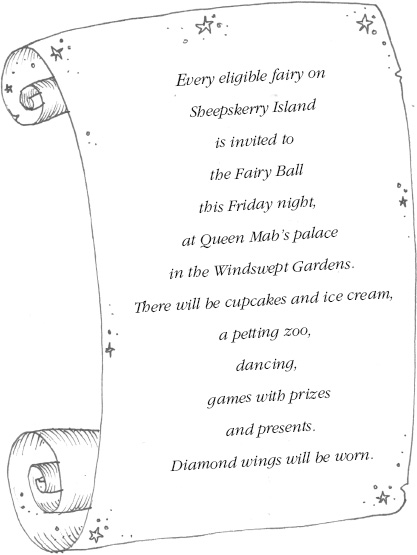 Every eligible fairy on
Sheepskerry Island
is invited to
the Fairy Ball
this Friday night,
at Queen Mab's palace
in the Windswept Gardens.
There will be cupcakes and ice cream,
a petting zoo,
dancing,
games with prizes
and presents.
Diamond wings will be worn.